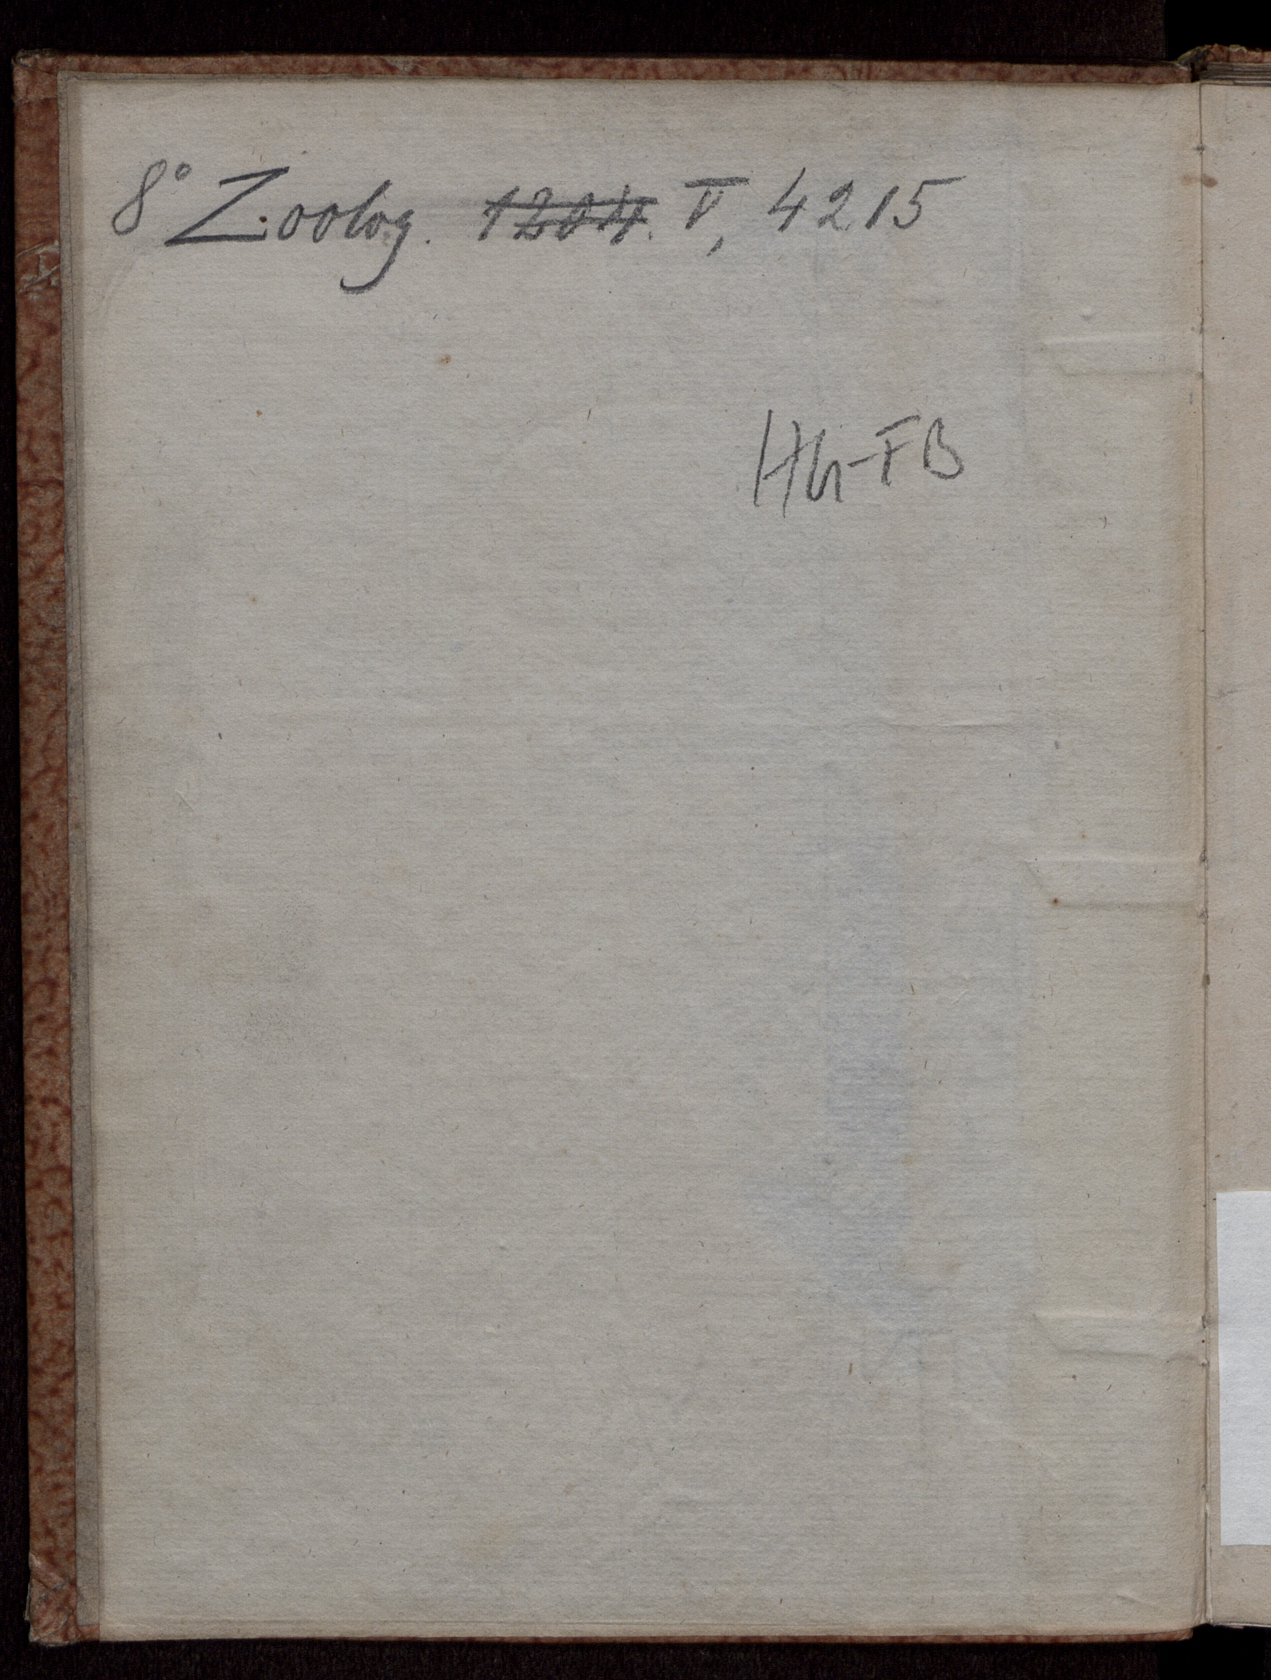 8° Zoolog. 1204. V, 4215
HG-FB